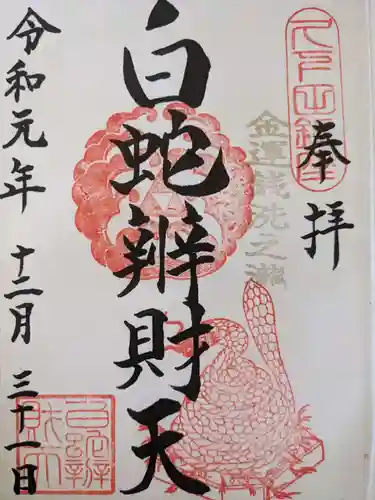 奉拝
金運銭洗之滝
白蛇辨財天
令和元年 十二月 三十一日
白蛇辨財天